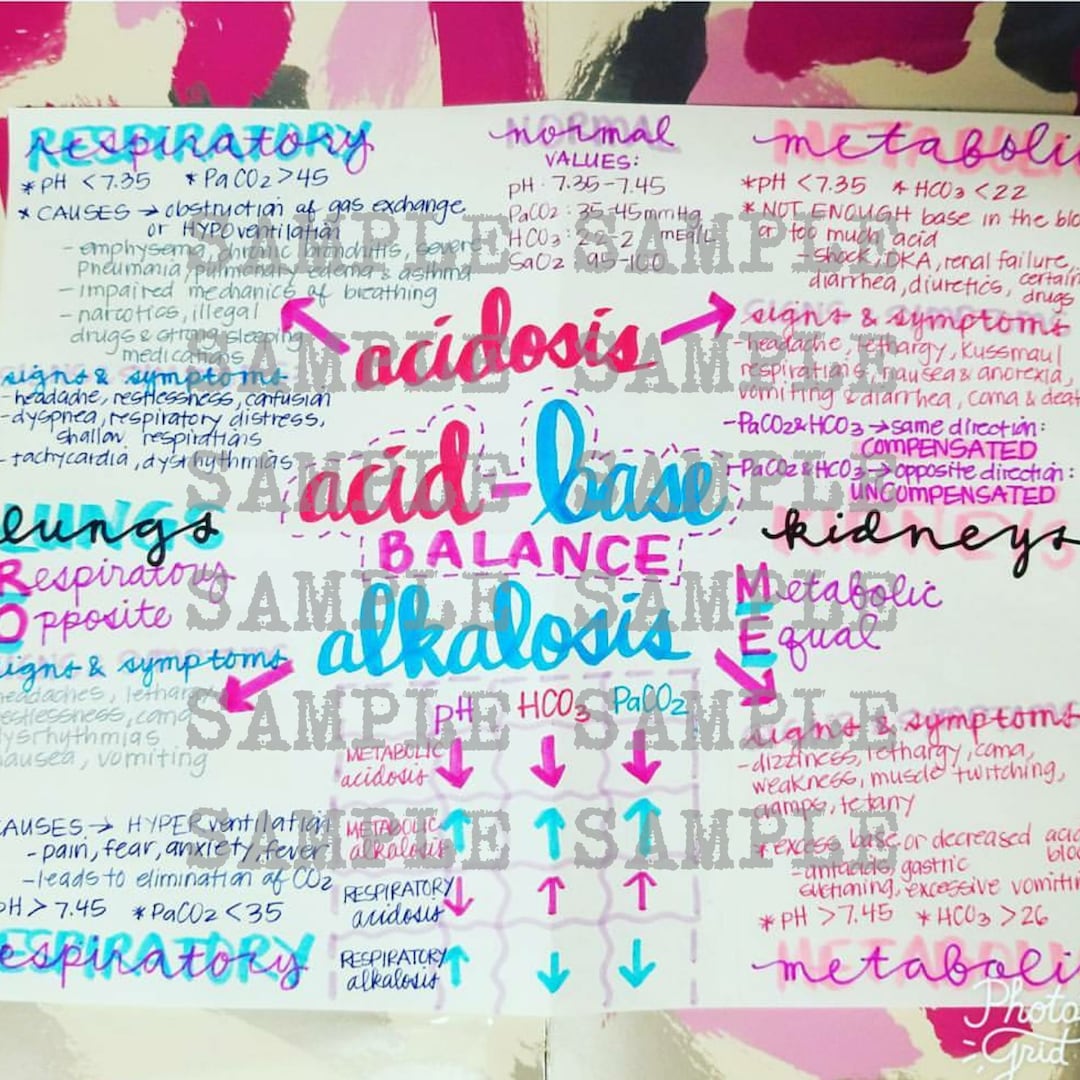 respiratory
*pH <7.35 *PaCO2>45
*CAUSES → obstruction of gas exchange
or HYPOventilation
- emphysema, chronic bronchitis, severe
pneumania, pulmonary edema & asthma
- impaired mechanics of breathing
- narcotics, illegal
drugs & strong sleeping
medications
signs & symptoms
- headache, restlessness, confusion
- dyspnea, respiratory distress,
shallow respirations
- tachycardia, dysrhythmias
normal
VALUES:
pH: 7.35-7.45
PaCO2: 35-45mmHg
HCO3: 22-2 mEq/L
SaO2 95-100
metaboli
*pH <7.35 *HCO3 <22
*NOT ENOUGH base in the blo
or too much acid
- shock, DKA, renal failure,
diarrhea, diuretics, certain
drugs
signs & symptoms
- headache, lethargy, kussmaul
respirations, nausea & anorexia,
vomiting & diarrhea, coma & deat
- PaCO2&HCO3 → same direction:
COMPENSATED
- PaCO2&HCO3 → opposite direction:
UNCOMPENSATED
acidosis
acid-base
BALANCE
alkalosis
lungs
Respiratory
Opposite
kidneys
Metabolic
Equal
signs & symptoms
headaches, lethargy
restlessness, coma
dysrhythmias
nausea, vomiting
CAUSES → HYPERventilation
- pain, fear, anxiety, fever
- leads to elimination of CO2
pH > 7.45 *PaCO2 <35
respiratory
pH HCO3 PaCO2
METABOLIC
acidosis ↓ ↓ ↓
METABOLIC
alkalosis ↑ ↑ ↑
RESPIRATORY
acidosis ↓ ↑ ↑
RESPIRATORY
alkalosis ↑ ↓ ↓
signs & symptoms
- dizziness, lethargy, coma,
weakness, muscle twitching,
cramps, tetany
*excess base or decreased acid
bloo
- antacids, gastric
suctioning, excessive vomitin
*pH >7.45 *HCO3 >26
metaboli
SAMPLE SAMPLE
SAMPLE SAMPLE
SAMPLE SAMPLE
SAMPLE SAMPLE
SAMPLE SAMPLE
SAMPLE SAMPLE
Photo
Grid